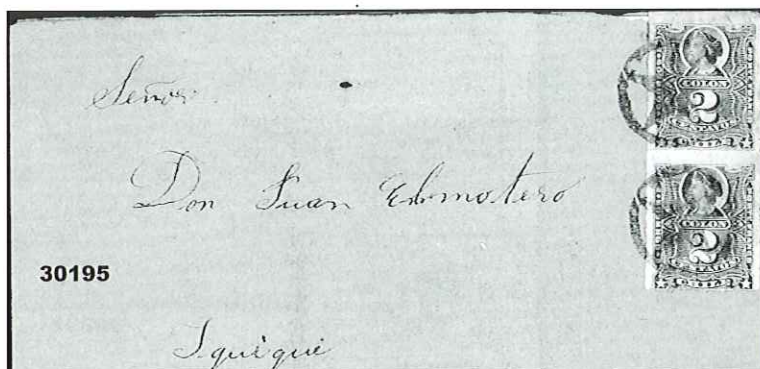 Señor
Don Juan
30195
Iquique
COLON
2
CENTAVOS
COLON
2
CENTAVOS